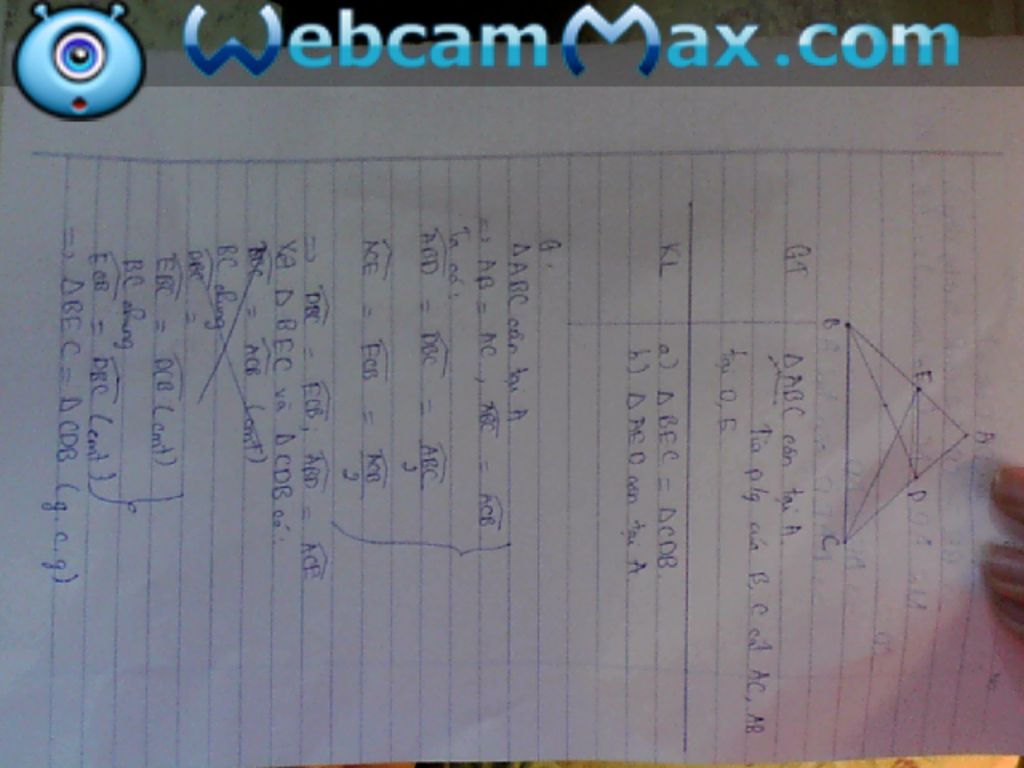 WebcamMax.com
A
E
D
B
C
GT
ΔABC cân tại A
Tia p/g của B, C cắt AC, AB
tại D, E
KL
a) ΔBEC = ΔCDB
b) ΔAED cân tại A
G:
ΔABC cân tại A
=> AB = AC, ABC = ACB
Ta có:
ABD = DBC = ABC
2
ACE = ECB = ACB
2
=> DBC = ECB, ABD = ACE
Xét ΔBEC và ΔCDB có:
= ACB (cmt)
BC chung
DBC =
EBC = DCB (cmt)
BC chung
ECB = DBC (cmt)
=> ΔBEC = ΔCDB (g.c.g)